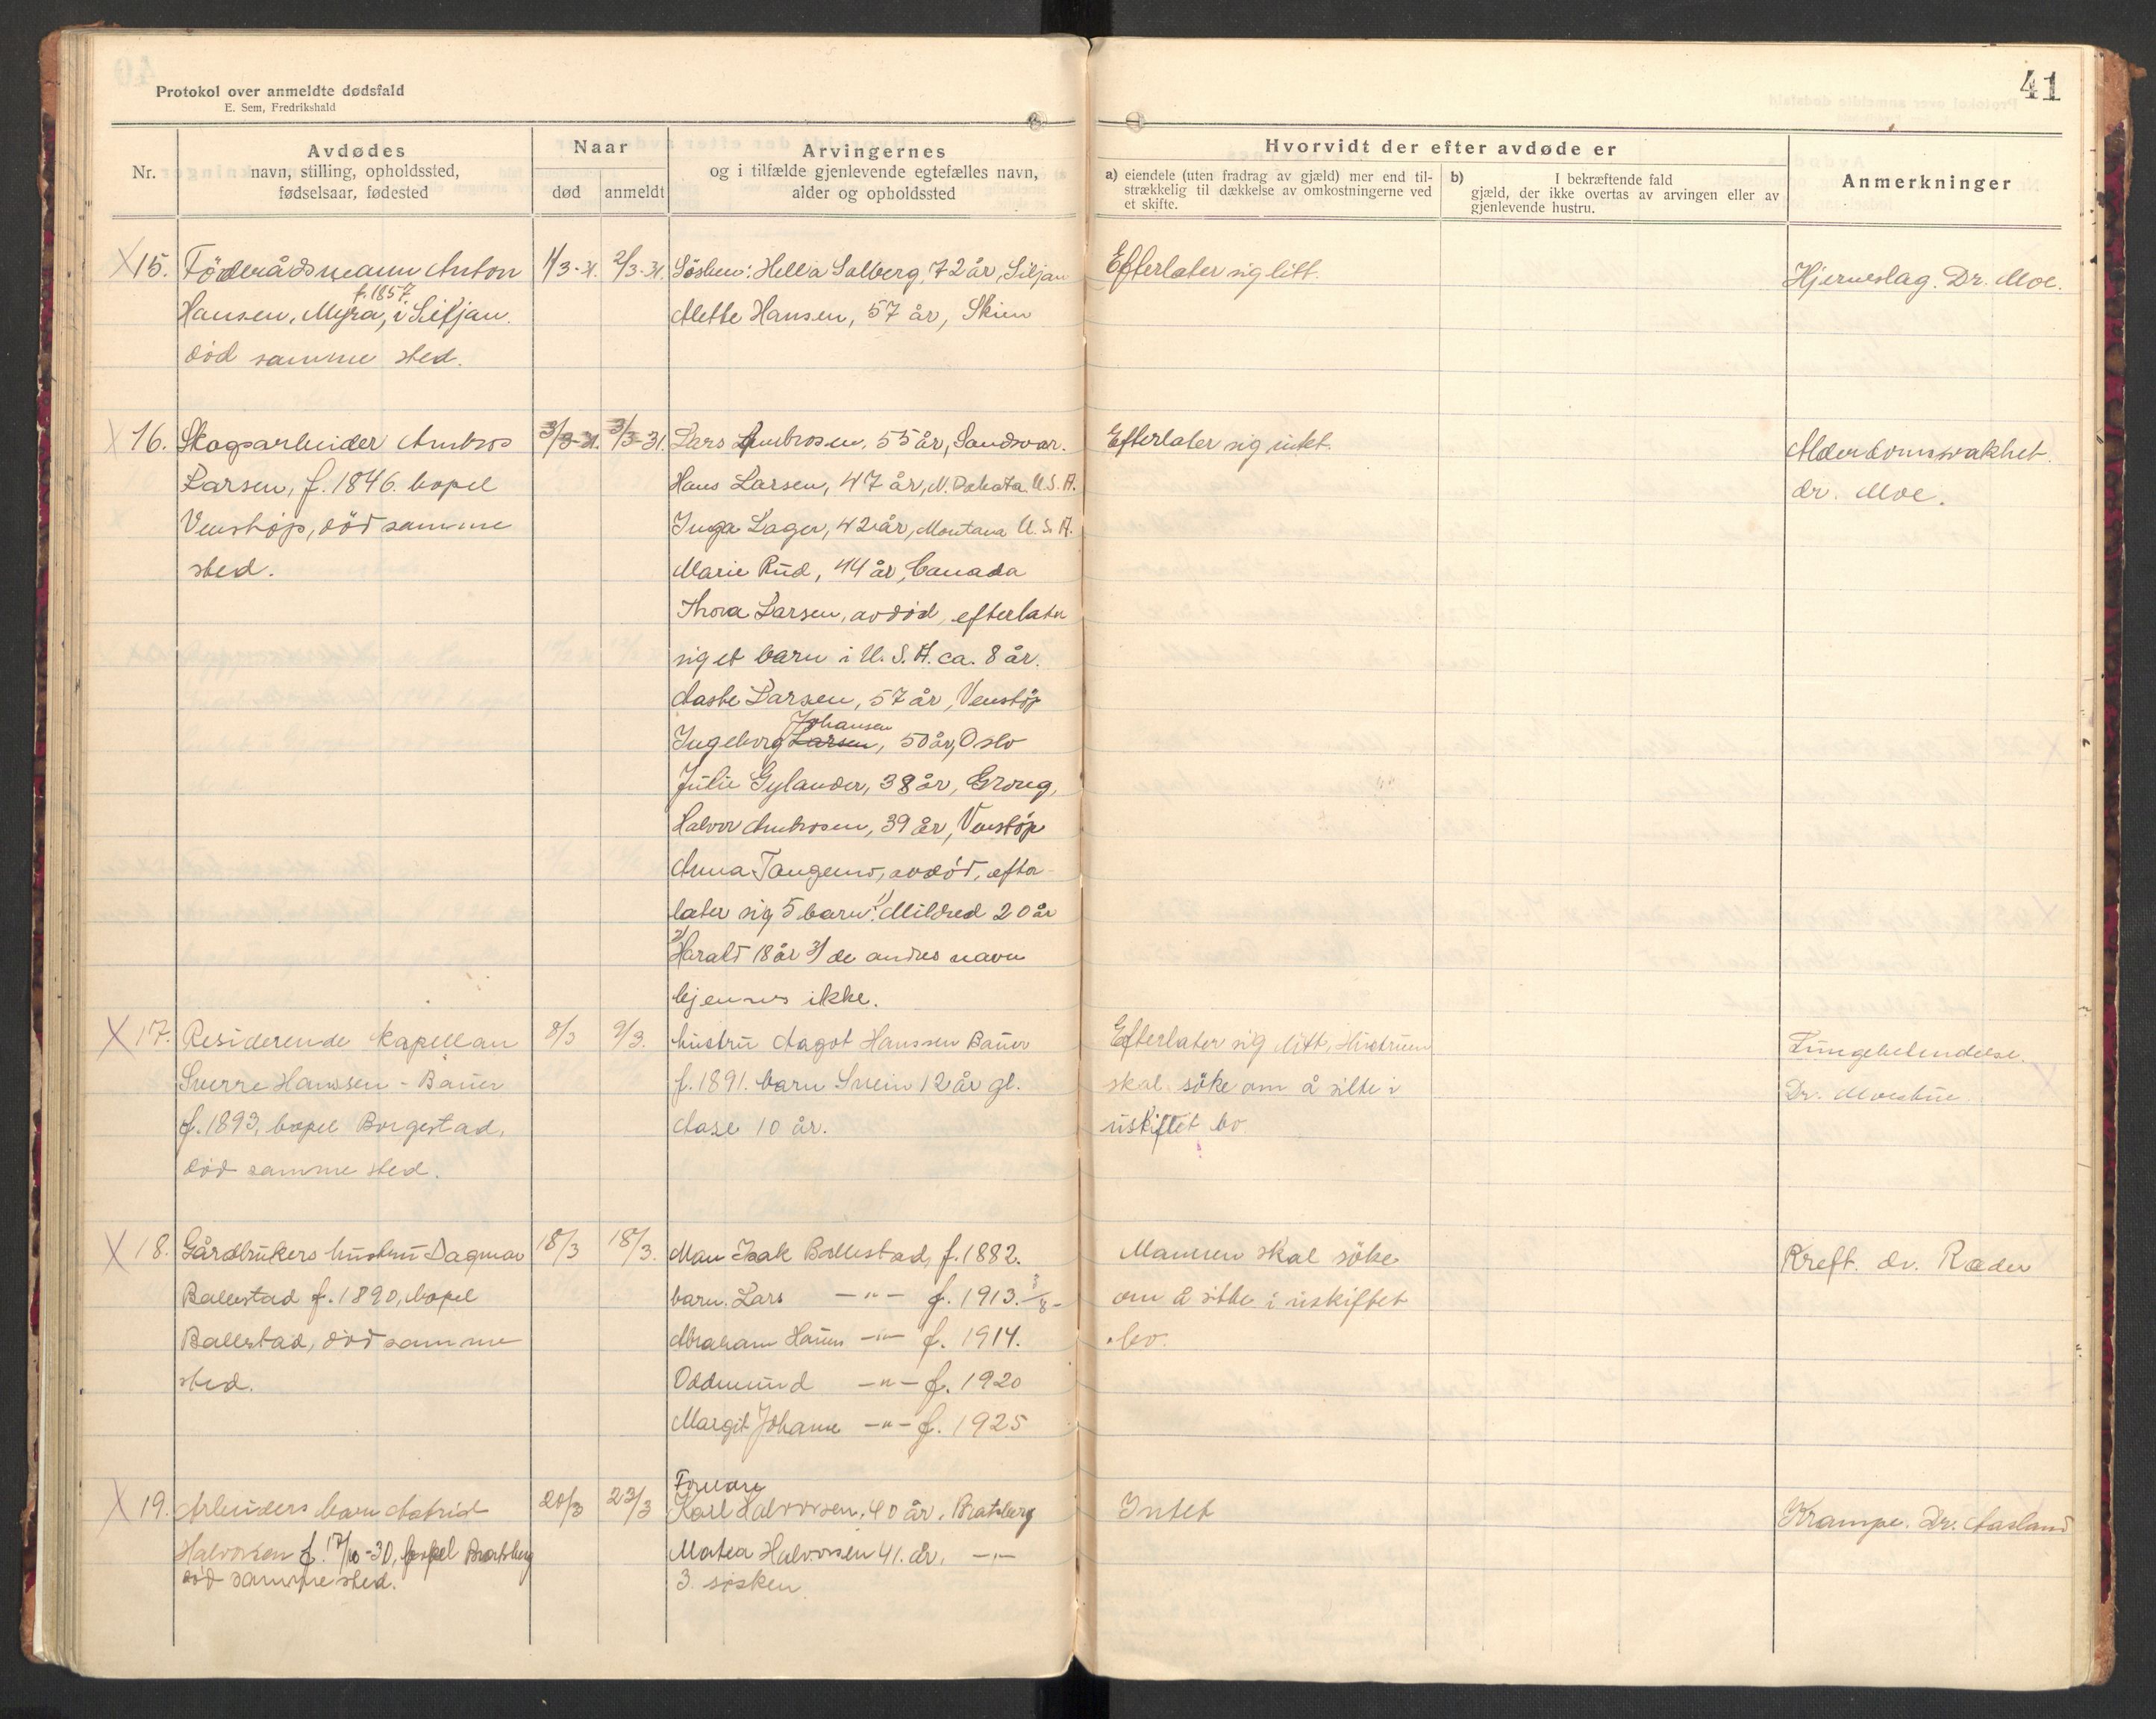 Protokol over anmeldte dødsfald
E. Sem, Fredrikshald
41
Nr.
Avdødes
navn, stilling, opholdssted,
fødselsaar, fødested
Naar
død
anmeldt
Arvingernes
og i tilfælde gjenlevende egtefælles navn,
alder og opholdssted
Hvorvidt der efter avdøde er
a) eiendele (uten fradrag av gjæld) mer end til-
strækkelig til dækkelse av omkostningerne ved
et skifte.
b) I bekræftende fald
gjæld, der ikke overtas av arvingen eller av
gjenlevende hustru.
Anmerkninger
X 15. Föderådsmann Anton
f. 1857
Hansen, Myra, i Siljan.
död samme sted.
1/3-31. 2/3-31.
Sösken: Hella Solberg, 72 år, Siljan
Alette Hansen, 57 år, Skien
Efterlater sig litt.
Hjerneslag. Dr. Moe.
X 16. Skogsarbeider Ambros
Larsen, f. 1846. bopel
Venstöp, död samme
sted.
3/3-31. 3/3-31.
Lars Ambrosen, 55 år, Sandsvær.
Hans Larsen, 47 år, N. Dakota U.S.A.
Inga Lager, 42 år, Montana U.S.A.
Marie Rud, 44 år, Canada
Thora Larsen, avdöd, efterlater
sig et barn i U.S.A. ca. 8 år.
Aaste Larsen, 57 år, Venstöp
Johansen
Ingeborg Larsen, 50 år, Oslo
Julie Gylander, 38 år, Grong,
Halvor Ambrosen, 39 år, Venstöp
Anna Tangens, avdöd, efter-
later sig 5 barn: 1/ Mildred 20 år
2/ Harald 18 år 3/ de andres navn
kjennes ikke.
Efterlater sig intet.
Alderdomssvakhet.
dr. Moe.
X 17. Residerende kapellan
Sverre Hanssen-Bauer
f. 1893, bopel Borgestad,
död samme sted.
8/3 9/3.
hustru Dagot Hanssen Bauer
f. 1891. barn Svein 12 år gl.
Aase 10 år.
Efterlater sig litt, Hustruen
skal söke om å sitte i
uskiftet bo
Lungebetendelse.
Dr. Moestue.
X 18. Gårdbrukers hustru Dagmar
Ballestad f. 1890, bopel
Ballestad, död samme
sted.
18/3 18/3.
Man Isak Ballestad, f. 1882.
barn. Lars -"- f. 1913. 3/8-
Abraham Hans -"- f. 1914.
Oddmund -"- f. 1920
Margit Johanne -"- f. 1925
Mannen skal söke
om å sitte i uskiftet
bo.
Kreft. dr. Ræder
X 19. Arbeiders barn Astrid
Halvorsen f. 17/10-30, bopel Bratsberg
död samme sted.
20/3 23/3
Foreldre
Karl Halvorsen, 40 år, Bratsberg
Matea Halvorsen 41. år, -"-
3. sösken
Intet
Krampe. Dr. Aasland